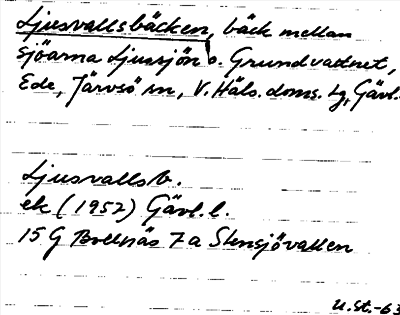 Ljusvallsbäcken, bäck mellan
sjöarna Ljussjön o. Grundvattnet,
Ede, Järvsö sn, V. Häls. doms. lg, Gävl.
Ljusvallsb.
ek (1952) Gävl. l.
15 G Bollnäs 7 a Stensjövallen
U.St.-63